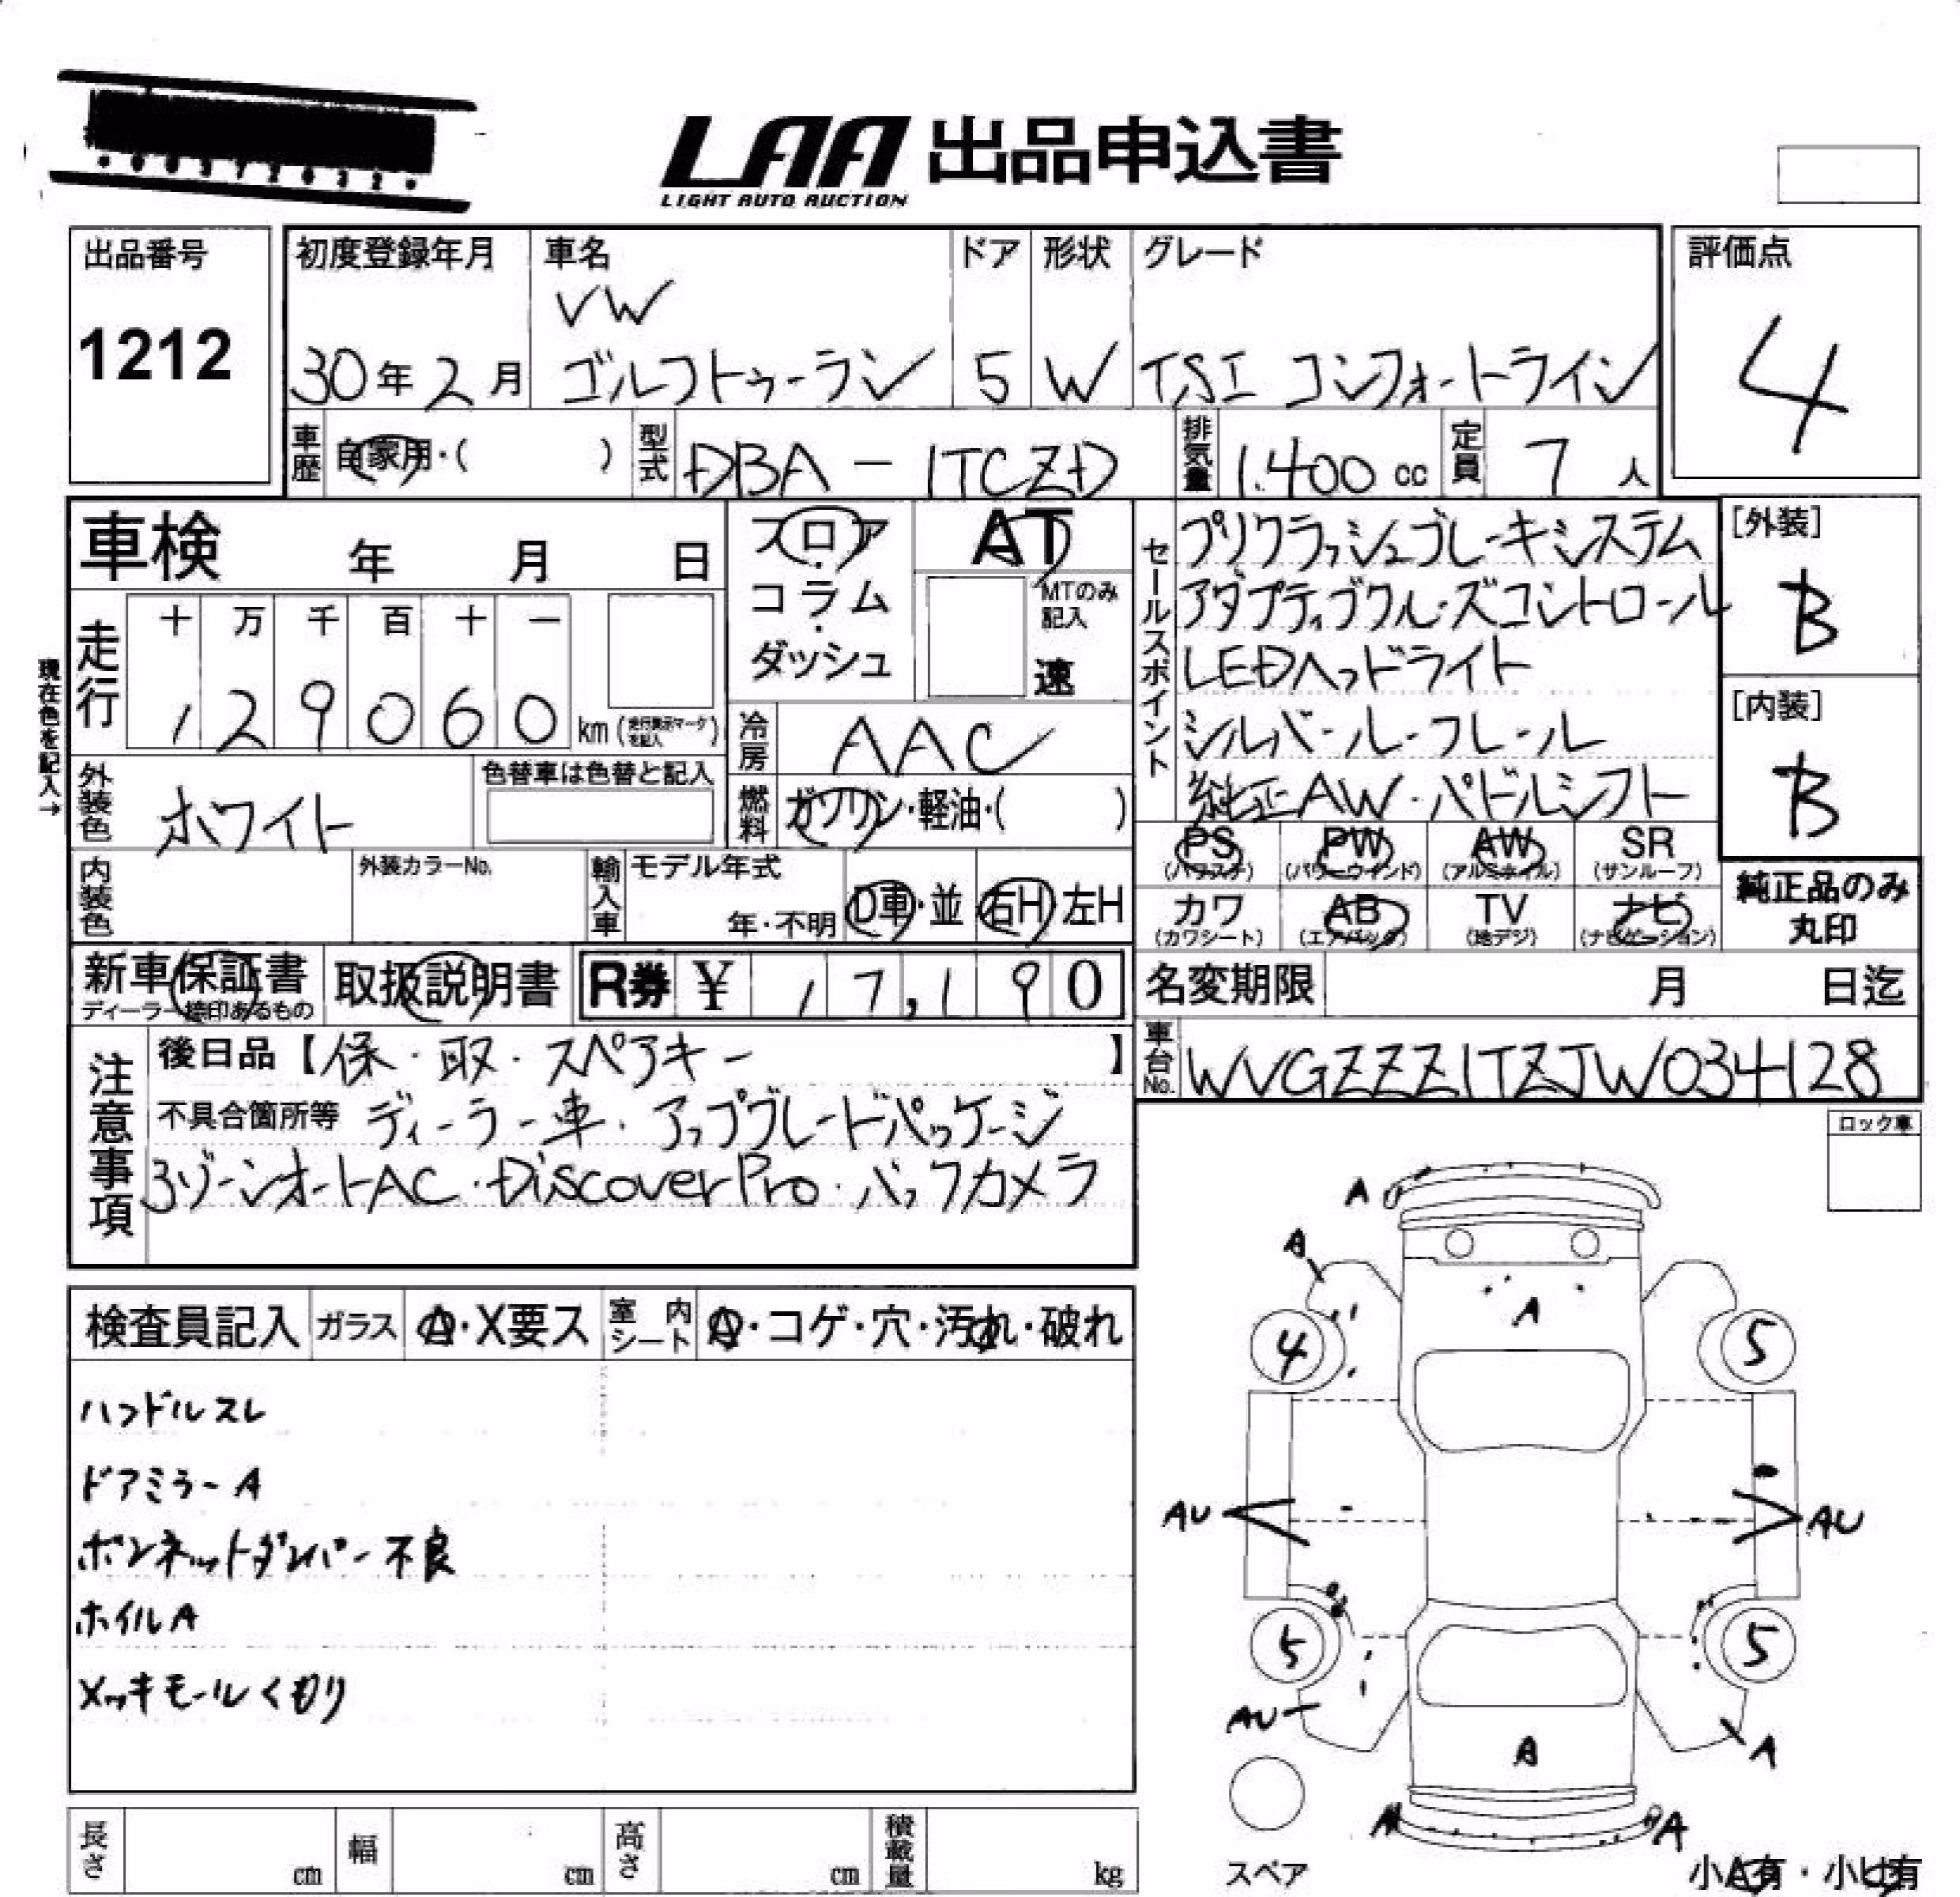 LAA 出品申込書
LIGHT AUTO AUCTION
出品番号
1212
初度登録年月
30年2月
車名
VW
ゴルフトゥーラン
ドア
5
形状
W
グレード
TSI コンフォートライン
評価点
4
車歴 自家用・( )
型式 DBA-1TCZD
排気量 1.400 cc
定員 7 人
車検 年 月 日
走行
十 万 千 百 十 一
1 2 9 0 6 0 km (走行表示マークを記入)
現在色を記入→
外装色 ホワイト
色替車は色替と記入
内装色
外装カラーNo.
フロア・コラム・ダッシュ
AT
MTのみ記入
速
冷房 AAC
燃料 ガソリン・軽油・( )
輸入車
モデル年式
年・不明
D車・並
右H 左H
セールスポイント
プリクラッシュブレーキシステム
アダプティブクルーズコントロール
LEDヘッドライト
シルバールーフレール
純正AW・パドルシフト
[外装]
B
[内装]
B
PS (パワステ)
PW (パワーウインド)
AW (アルミホイル)
SR (サンルーフ)
カワ (カワシート)
AB (エアバック)
TV (地デジ)
ナビ (ナビゲーション)
純正品のみ
丸印
新車保証書
ディーラー捺印あるもの
取扱説明書
R券 ¥ 17,190
名変期限 月 日迄
車台No. WVGZZZ1TZJW034128
注意事項
後日品【保・取・スペアキー】
不具合箇所等 ディーラー車・アップグレードパッケージ
3ゾーンオートAC・DiscoverPro・バックカメラ
ロック車
検査員記入
ガラス A・X要ス
室内シート A・コゲ・穴・汚れ・破れ
ハンドルスレ
ドアミラーA
ボンネットダンパー不良
ホイルA
メッキモールくもり
A
A
A
4
5
AU
AU
5
5
AU
A
A
A
A
スペア
小A有・小U有
長さ cm
幅 cm
高さ cm
積載量 kg